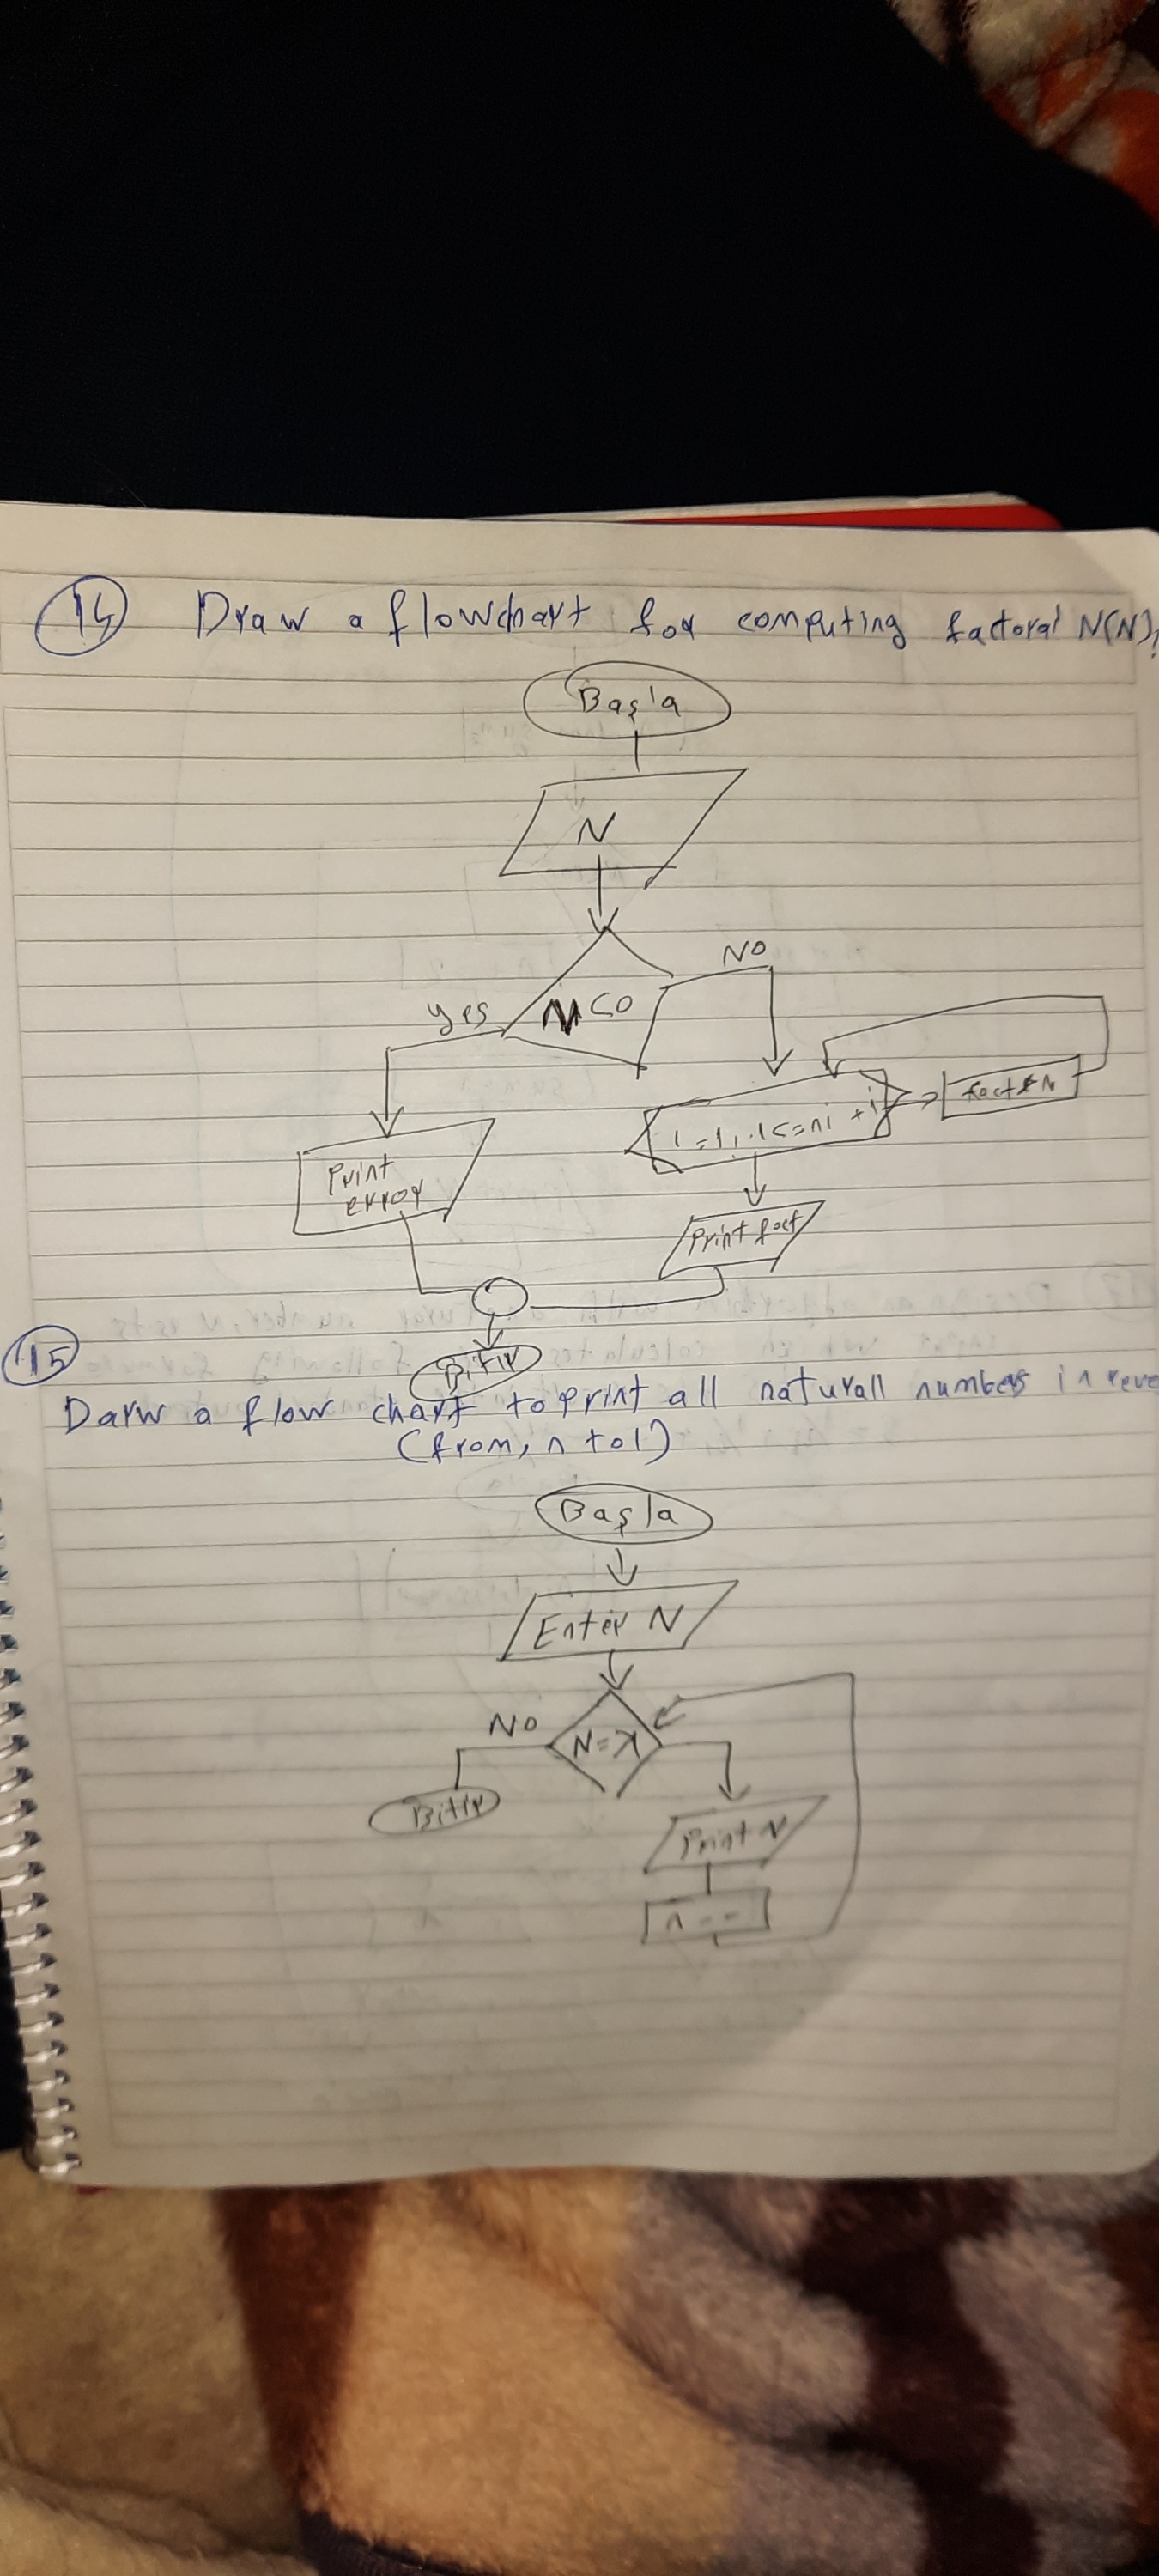 14 Draw a flowchart for computing factoral N(N)!
Başla
N
NO
yes N<0
fact*N
Print
error
Print fact
15
Bitir
Darw a flow chart to print all naturall numbers in reve
(from, n to 1)
Başla
Enter N
NO
Bitir
Print N
n--